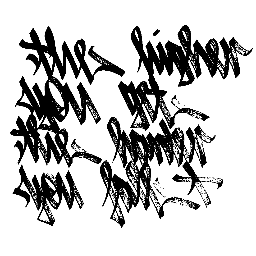 the higher
you get
the harder
you fall